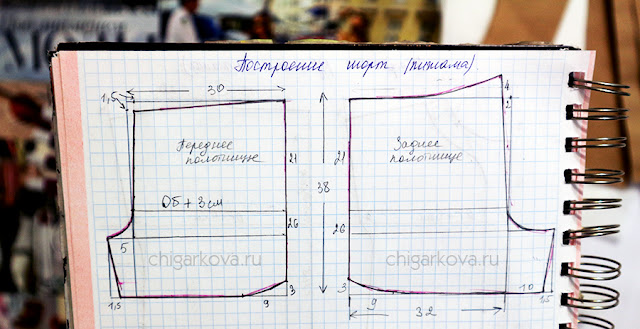 Построение шорт (пижама)
1,5
30
4
2
Переднее
полотнище
Заднее
полотнище
21
21
38
Об + 3 см
26
26
5
chigarkova.ru
chigarkova.ru
3
3
1,5
9
9
32
10
1,5